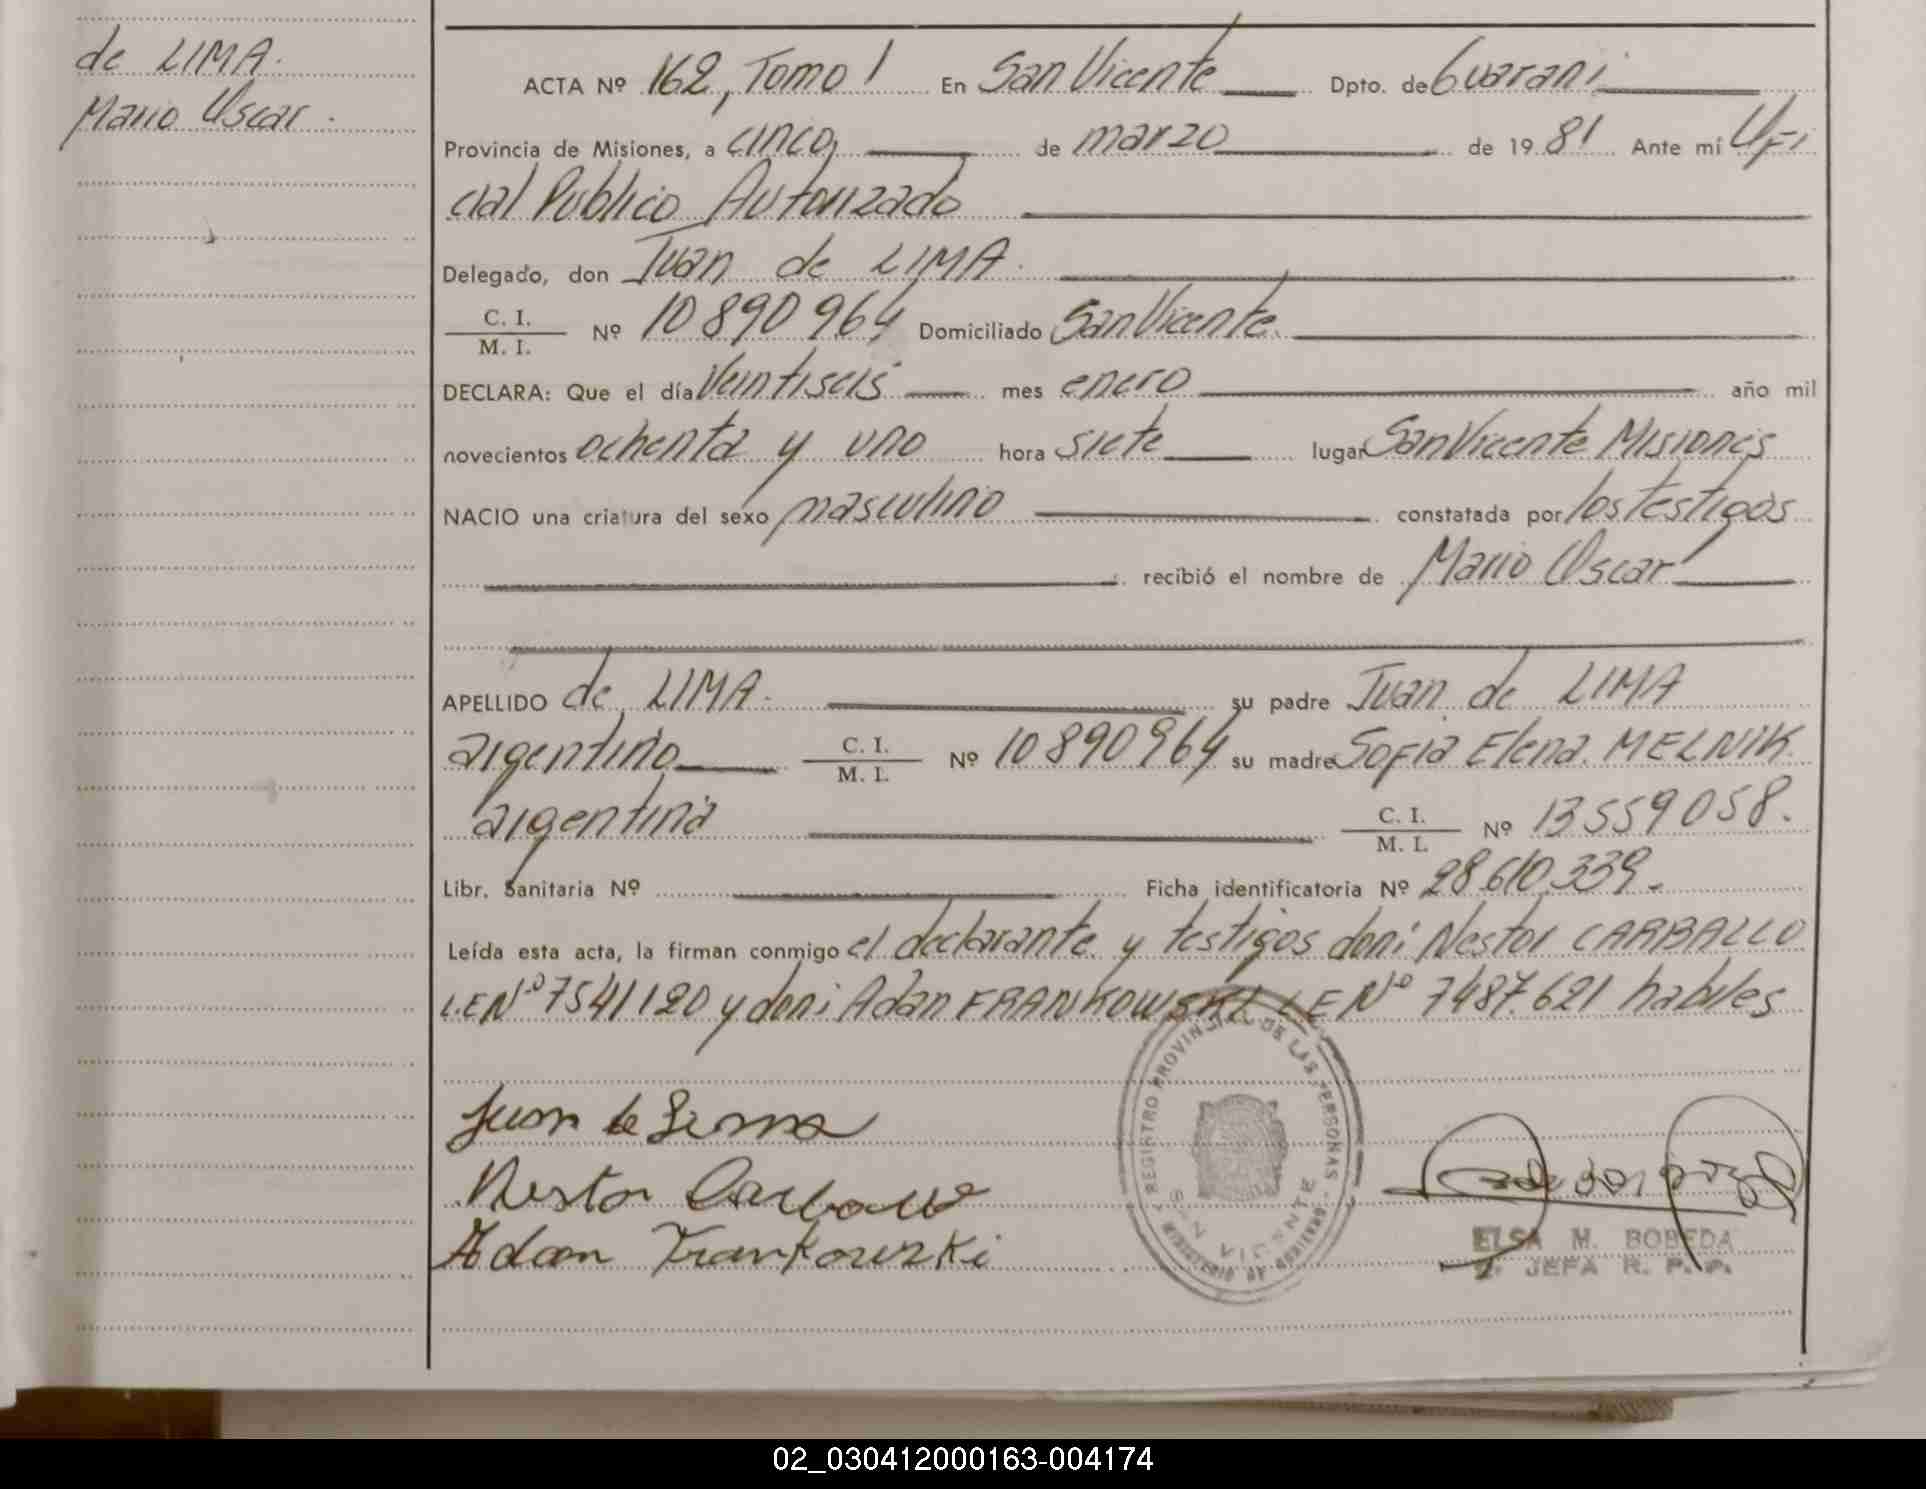 de LIMA.
Mario Oscar.
ACTA Nº 162, Tomo I En San Vicente Dpto. de Guarani
Provincia de Misiones, a cinco, de marzo de 1981 Ante mí Ofi
cial Publico Autorizado
Delegado, don Juan de LIMA.
C. I.
M. I. Nº 10890964 Domiciliado San Vicente.
DECLARA: Que el día Veintiseis mes enero año mil
novecientos ochenta y uno hora siete lugar San Vicente Misiones
NACIO una criatura del sexo masculino constatada por los testigos
recibió el nombre de Mario Oscar
APELLIDO de LIMA. su padre Juan de LIMA
argentino C. I. M. I. Nº 10890964 su madre Sofia Elena MELNIK
argentina C. I. M. I. Nº 13559058.
Libr. Sanitaria Nº Ficha identificatoria Nº 28.610.339.
Leída esta acta, la firman conmigo el declarante y testigos don: Nestor CARBALLO
L.E Nº 7541120 y don: Adan FRANKOWSKI L E Nº 7487.621 habiles
REGISTRO PROVINCIAL DE LAS PERSONAS
SAN VICENTE
MINISTERIO DE GOBIERNO
Juan de Lima
Nestor Carballo
Adan Frankowski
ELSA M. BOBEDA
JEFA R. P. P.
02_030412000163-004174